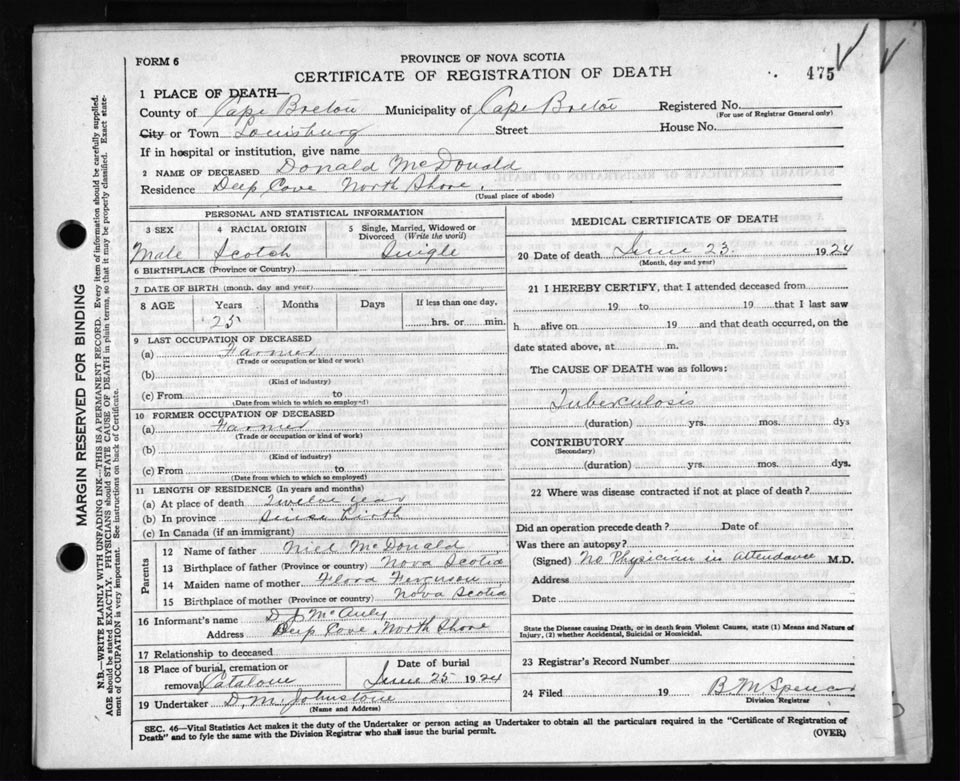 FORM 6
PROVINCE OF NOVA SCOTIA
CERTIFICATE OF REGISTRATION OF DEATH
475
1 PLACE OF DEATH—
County of Cape Breton Municipality of Cape Breton Registered No.
(For use of Registrar General only)
City or Town Louisburg Street House No.
If in hospital or institution, give name
2 NAME OF DECEASED Donald McDonald
Residence Deep Cove North Shore.
(Usual place of abode)
PERSONAL AND STATISTICAL INFORMATION
3 SEX 4 RACIAL ORIGIN 5 Single, Married, Widowed or Divorced (Write the word)
Male Scotch Single
6 BIRTHPLACE (Province or Country)
7 DATE OF BIRTH (month, day and year)
8 AGE Years Months Days If less than one day,
25 hrs. or min.
9 LAST OCCUPATION OF DECEASED
(a) Farmer
(Trade or occupation or kind or work)
(b)
(Kind of industry)
(c) From to
(Date from which to which so employed)
10 FORMER OCCUPATION OF DECEASED
(a) Farmer
(Trade or occupation or kind of work)
(b)
(Kind of industry)
(c) From to
(Date from which to which so employed)
11 LENGTH OF RESIDENCE (In years and months)
(a) At place of death Twelve year
(b) In province Sinse birth
(c) In Canada (if an immigrant)
Parents
12 Name of father Niel McDonald
13 Birthplace of father (Province or country) Nova Scotia
14 Maiden name of mother Flora Ferguson
15 Birthplace of mother (Province or country) Nova Scotia
16 Informant's name D J McAuly
Address Deep Cove North Shore
17 Relationship to deceased
18 Place of burial, cremation or removal Catalone Date of burial June 25 1924
19 Undertaker D. M. Johnstone
(Name and Address)
MEDICAL CERTIFICATE OF DEATH
20 Date of death June 23. 1924
(Month, day and year)
21 I HEREBY CERTIFY, that I attended deceased from
19 to 19 that I last saw
h alive on 19 and that death occurred, on the
date stated above, at m.
The CAUSE OF DEATH was as follows:
Tuberculosis
(duration) yrs. mos. dys
CONTRIBUTORY
(Secondary)
(duration) yrs. mos. dys.
22 Where was disease contracted if not at place of death?
Did an operation precede death? Date of
Was there an autopsy?
(Signed) No Physician in Attendance M.D.
Address
Date
State the Disease causing Death, or in death from Violent Causes, state (1) Means and Nature of
Injury, (2) whether Accidental, Suicidal or Homicidal.
23 Registrar's Record Number
24 Filed 19 B. M. Spencer
Division Registrar
SEC. 46—Vital Statistics Act makes it the duty of the Undertaker or person acting as Undertaker to obtain all the particulars required in the "Certificate of Registration of
Death" and to fyle the same with the Division Registrar who shall issue the burial permit. (OVER)
MARGIN RESERVED FOR BINDING
N.B.—WRITE PLAINLY WITH UNFADING INK—THIS IS A PERMANENT RECORD. Every item of information should be carefully supplied.
AGE should be stated EXACTLY. PHYSICIANS should STATE CAUSE OF DEATH in plain terms, so that it may be properly classified. Exact state-
ment of OCCUPATION is very important. See instructions on back of Certificate.